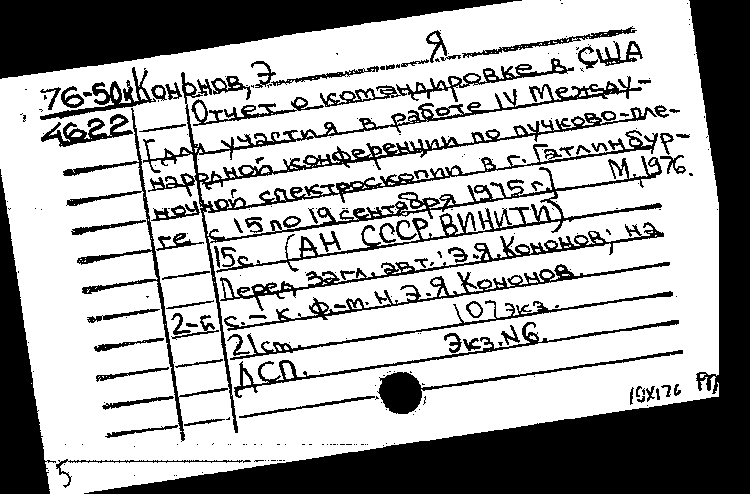 Я
76-50к Кононов, Э
4622 Отчет о командировке в США
[для участия в работе IV Между-
народной конференции по пучково-пле-
ночной спектроскопии в г. Гатлинбур-
ге с 15 по 19 сентября 1975 г.] М., 1976.
15с. (АН СССР. ВИНИТИ).
Перед загл. авт.: Э.Я. Кононов; на
2-й с. – к. ф.-м. н. Э.Я. Кононов.
21 см. 107 экз.
ДСП. Экз. N6.
19X176
5